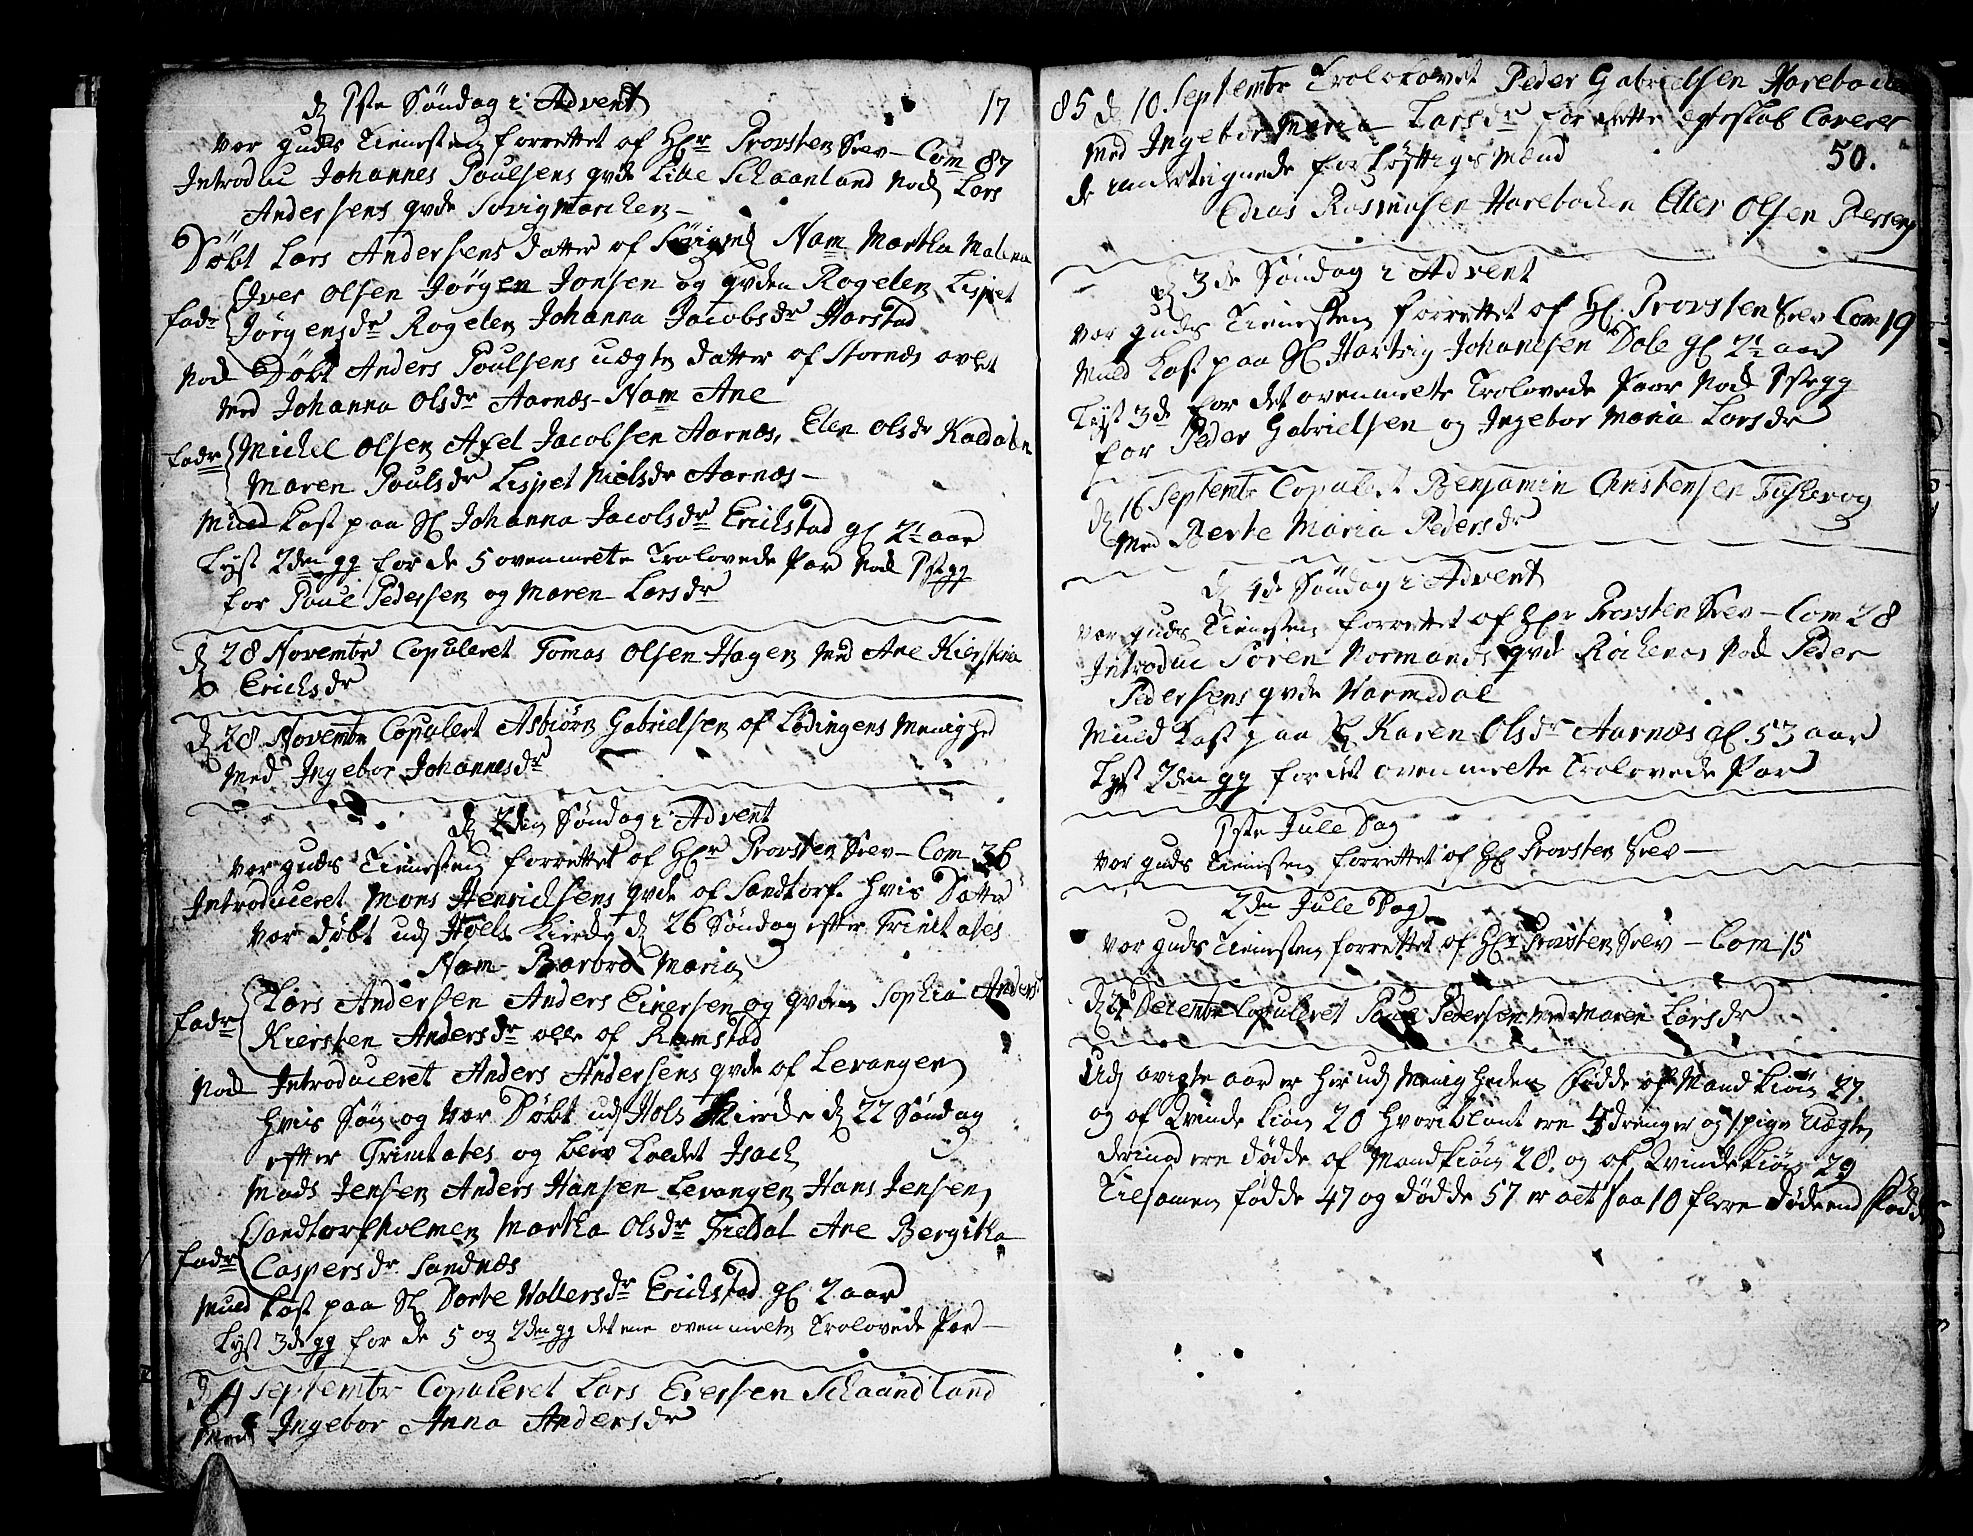 d 1ste Søndag i Advent 17
var guds Tienesten forrettet af Hr Provsten Srev - Com 87
Introduc Johannes Poulsens qvde Lille Schaanland Nok Lars
Andersens qvde Sørvigmarchen -
Døbt Lars Andersens datter af Sørvigm Nam Martha Malena
Iver Olsen Jørgen Jonsen og qvden Rogelen Lispet
fadr Jørgensdr Rogelen Johanna Jacobsdr Harstad
Nok Døbt Anders Poulsens uægte datter af Stornæs avlet
Med Johanna Olsdr Aarnæs - Nam Ane
fadr Michel Olsen Axel Jacobsen Aarnæs, Elen Olsdr Kaldalen
Maren Poulsdr Lispet Nielsdr Aarnæs -
Muld Kast paa Sl Johanna Jacobsdr Erichstad gl 2½ aar
Lyst 2den gg for de 5 ovenmelte Trolovede Par Nok 1ste gg
for Poul Pedersen og Maren Larsdr
d 28 Novembr Copuleret Tomas Olsen Hagen Med Ane Kierstina
Erichsdr
d 28 Novembr Copulert Asbiørn Gabrielsen af Lødingens Menighed
Med Ingebor Johannesdr
d 2den Søndag i Advent
var guds Tienesten forrettet af Hr Provsten Srev - Com 36
Introduceret Mons Henrichsens qvde af Sandtorf hvis Datter
var døbt udj Hoels Kierche d 26 Søndag efter Trinitates
Nam Barbro Maria
Lars Andersen Anders Einersen og qvden Sophia Andersd
fadr Kiersten Andersdr alle af Ramstad
Nok Introduceret Anders Andersens qvde af Levangen
hvis Søn og var Døbt udj Hols Kierche d 22 Søndag
efter Trinitates og blev Kaldet Isach
Mads Jensen Anders Hansen Levangen Hans Jensen
Sandtorfholmen Martha Olsdr Fieldal Ane Bergitha
fadr Caspersdr Sandnæs
Muld Kast paa Sl Dorte Vollersdr Erichstad gl 2 aar
Lyst 3de gg for de 5 og 2den gg det ene ovenmelte Trolovede Par -
d 4 Septembr Copuleret Lars Eversen Schaandland
Med Ingebor Anna Andersdr
85 d 10 Septembr Trolovet Peder Gabrielsen Harebachen
Med Ingebor Maria Larsdr for dette egteskab Caverer
de understegnede forløftigs Mænd 50.
Edias Rasmusen Harebachen Eller Olsen Bessen
d 3de Søndag i Advent
var guds Tienesten forrettet af H. Provsten Srev Com 19
Muld Kast paa Sl Hartvig Johansen Dale gl 2½ aar
Lyst 3de for det ovenmelte Trolovede Paar Nok 1ste gg
for Peder Gabrielsen og Ingebor Maria Larsdr
d 16 Septembr Copulert Benjamin Christensen Fuskevog
Med Berte Maria Pedersdr
d 4de Søndag i Advent
var guds Tienesten forrettet af Hr Provsten Srev - Com 28
Introduc Søren Normands qvde Røchenes Nok Peder
Pedersens qvde Varmedal
Muld Kast paa Sl Karen Olsdr Aarnæs gl 53 aar
Lyst 2den gg for det ovenmelte Trolovede Par
1ste Jule Dag
var guds Tienesten forrettet af H Provsten Srev -
2den Jule Dag
var guds Tienesten forrettet af Hr Provsten Srev - Com 15
d Decembr Copuleret Poul Pedersen Med Maren Larsdr
Udj avigte aar er her udj Menigheden fødde af Mandkiøn 27
og af Qvindekiøn 20 hvoriblant ere 4 drenger og 1 pige Uægte
derimod ere dødde af Mandkiøn 28. og af Qvindekiøn 29
Tilsamen fødde 47 og dødde 57 er alt saa 10 flere døde end fødde